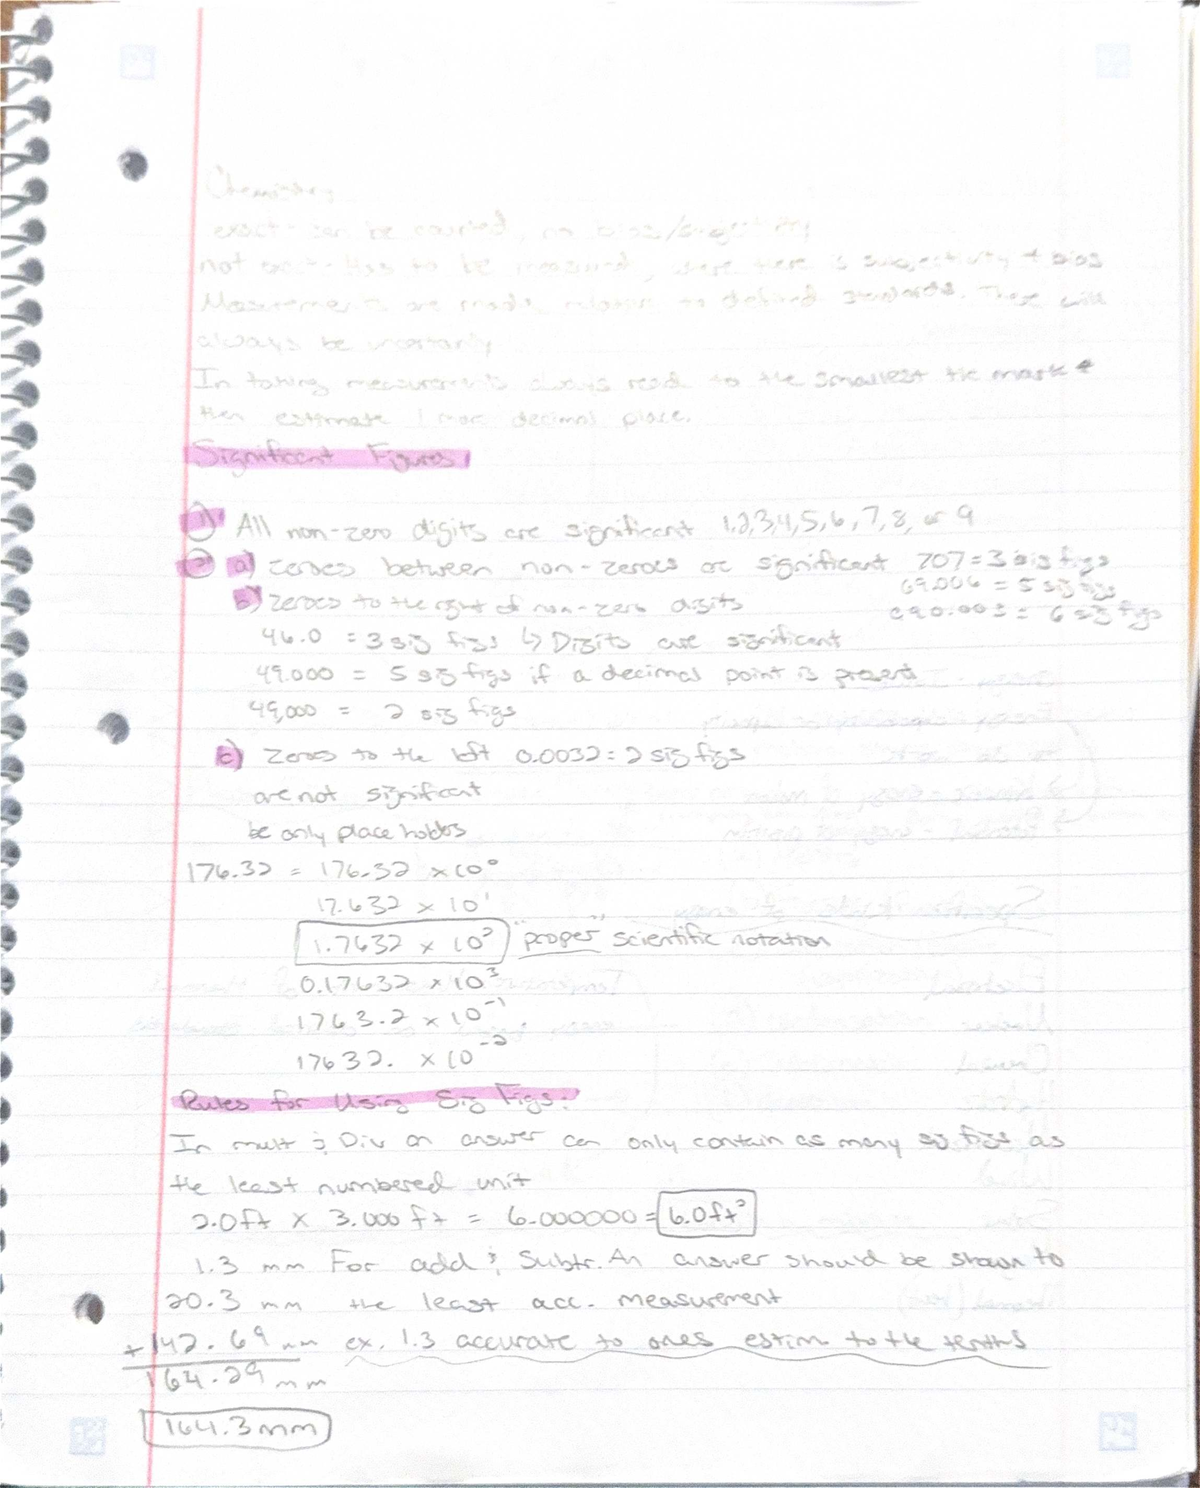 Chemistry
exact - can be counted, no bias/subjectivity
not exact - Has to be measured, where there is subjectivity + bias
Measurements are made relative to defined standards. There will
always be uncertainty
In taking measurements always read to the smallest tic mark &
then estimate 1 more decimal place.
Significant Figures
1) All non-zero digits are significant 1,2,3,4,5,6,7,8, or 9
2) a) zeroes between non-zeroes are significant 707 = 3 sig figs
69.006 = 5 sig figs
b) zeroes to the right of non-zero digits
690.003 = 6 sig figs
46.0 = 3 sig figs ↳ Digits are significant
49.000 = 5 sig figs if a decimal point is present
49,000 = 2 sig figs
c) zeroes to the left 0.0032 = 2 sig figs
are not significant
bc only place holders
176.32 = 176.32 x 10⁰
17.632 x 10¹
1.7632 x 10² "proper" scientific notation
0.17632 x 10³
1763.2 x 10⁻¹
17632. x 10⁻²
Rules for Using Sig Figs:
In mult & Div an answer can only contain as many sig figs as
the least numbered unit
2.0ft x 3.000 ft = 6.000000 = 6.0ft²
1.3 mm For add & Subtr. An answer should be shown to
20.3 mm the least acc. measurement
+142.69 mm ex. 1.3 accurate to ones estim. to the tenths
164.29 mm
164.3mm